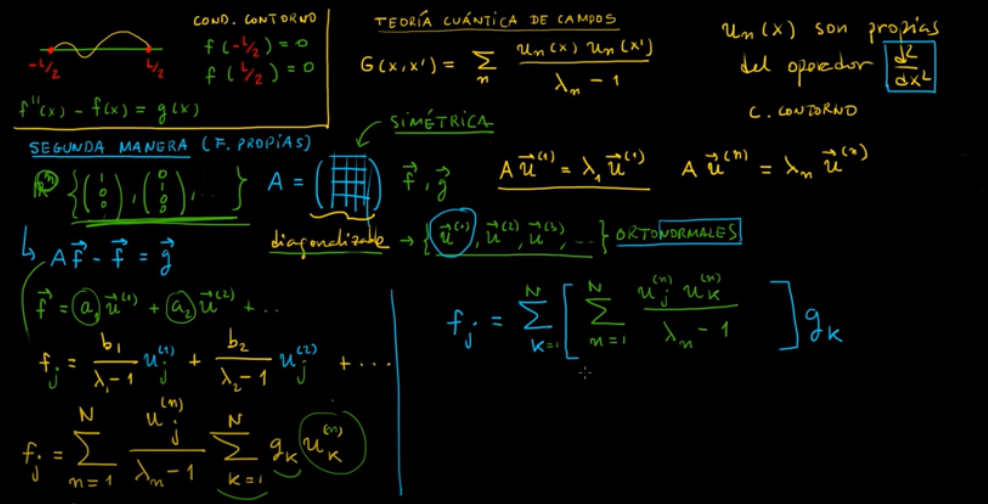 COND. CONTORNO
-L/2 L/2
f(-L/2) = 0
f(L/2) = 0
f''(x) - f(x) = g(x)
TEORÍA CUÁNTICA DE CAMPOS
G(x,x') = Σ_n u_n(x) u_n(x') / (λ_n - 1)
u_n(x) son propias
del operador d²/dx²
C. CONTORNO
SEGUNDA MANERA (F. PROPIAS)
SIMÉTRICA
ℝⁿ {(1 0 0), (0 1 0 0), ...} A = ( ) f⃗, g⃗
A u⃗⁽¹⁾ = λ₁ u⃗⁽¹⁾ A u⃗⁽ⁿ⁾ = λₙ u⃗⁽ⁿ⁾
diagonalizable → {u⃗⁽¹⁾, u⃗⁽²⁾, u⃗⁽³⁾, ...} ORTONORMALES
↳ A f⃗ - f⃗ = g⃗
f⃗ = a₁ u⃗⁽¹⁾ + a₂ u⃗⁽²⁾ + ...
f_j = b₁/(λ₁-1) u_j⁽¹⁾ + b₂/(λ₂-1) u_j⁽²⁾ + ...
f_j = Σ_{n=1}^{N} u_j⁽ⁿ⁾/(λₙ-1) Σ_{k=1}^{N} g_k u_k⁽ⁿ⁾
f_j = Σ_{k=1}^{N} [ Σ_{n=1}^{N} u_j⁽ⁿ⁾ u_k⁽ⁿ⁾ / (λₙ - 1) ] g_k